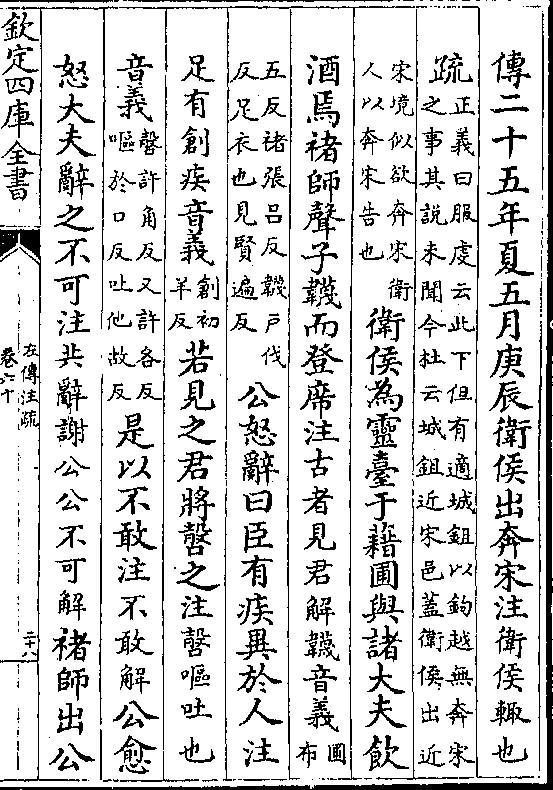 傳二十五年夏五月庚辰衛侯出奔宋注衛侯輒也
疏正義曰服虔云此下但有適城鉏以鉤越無奔宋
之事其說未聞今杜云城鉏近宋邑蓋衛侯出近
宋境似欲奔宋衛
人以奔宋告也
衛侯為靈臺于藉圃與諸大夫飲
酒焉褚師聲子韈而登席注古者見君解韈音義圃布
五反褚張呂反韈戶伐
反足衣也見賢遍反
公怒辭曰臣有疾異於人注
足有創疾音義創初羊反若見之君將嗀之注嗀嘔吐也
音義嗀許角反又許各反
嘔於口反吐他故反
是以不敢注不敢解公愈
怒大夫辭之不可注共辭謝公公不可解褚師出公
欽定四庫全書
左傳注疏
卷六十
二十八